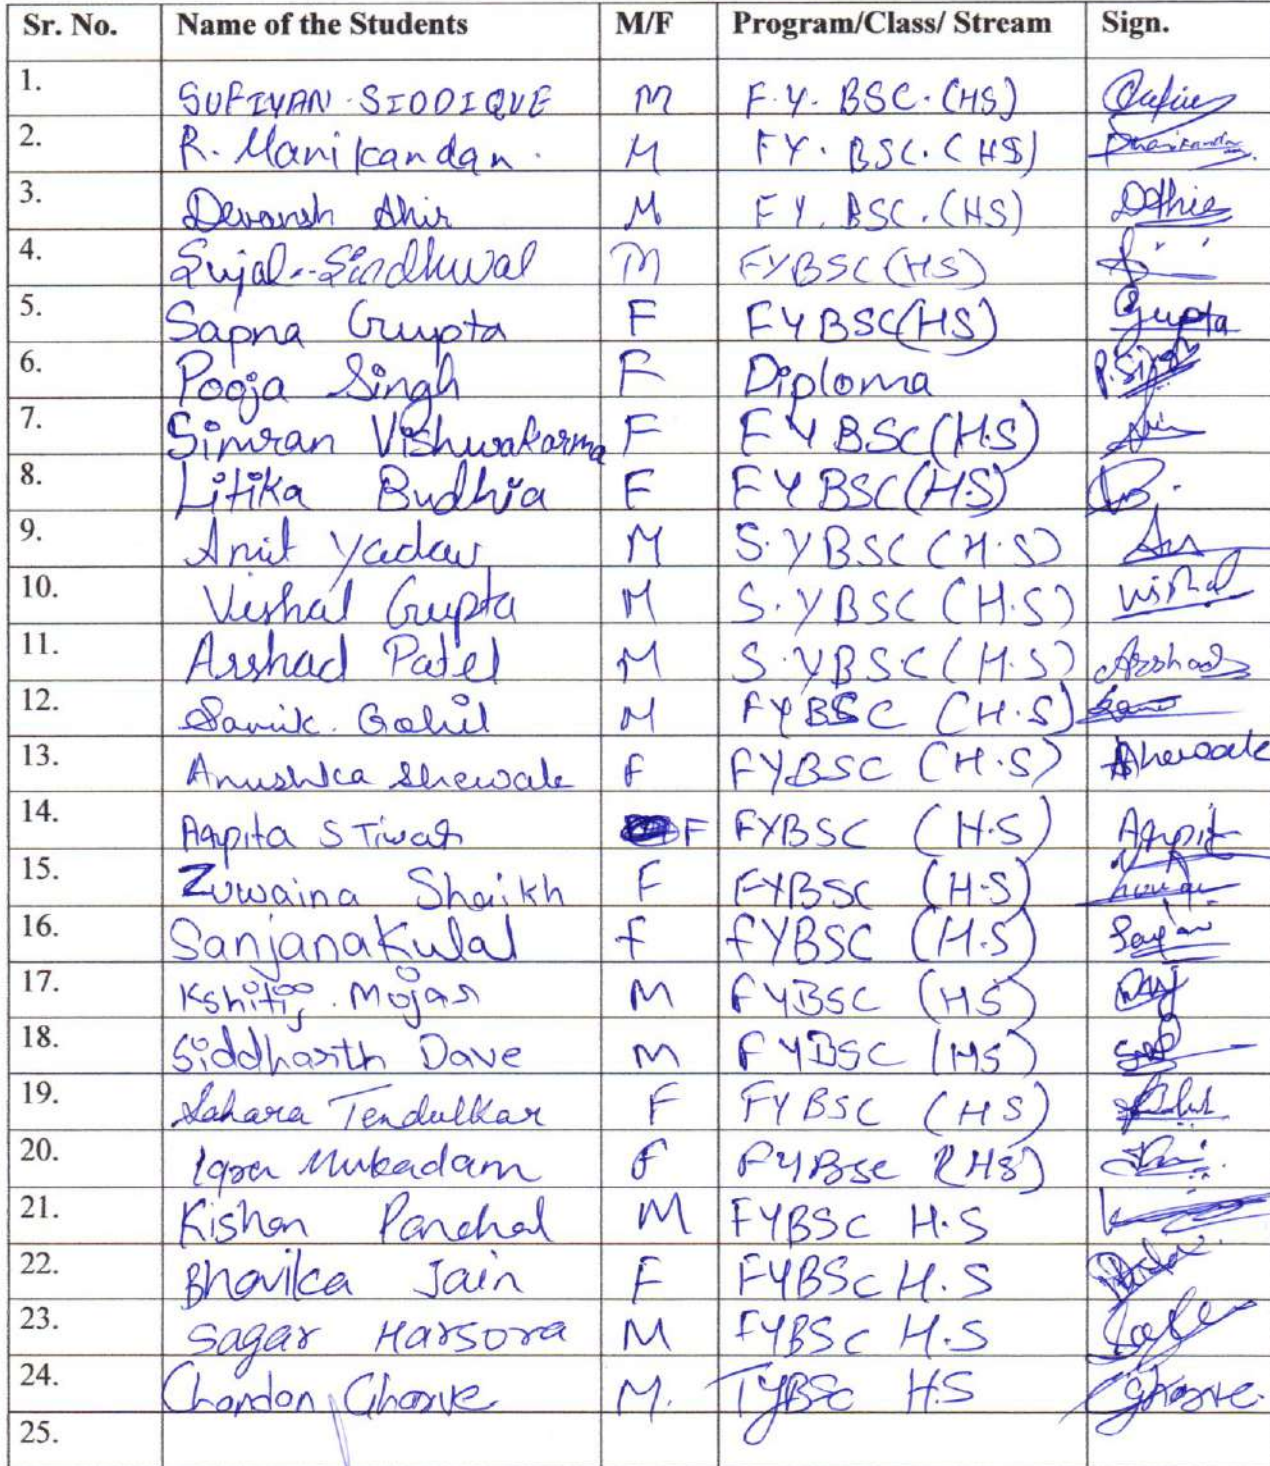 Sr. No. Name of the Students M/F Program/Class/ Stream Sign.
1. SUFIYAN SIDDIQUE M F.Y. BSC. (HS)
2. R. Manikandan. M FY. BSC. (HS)
3. Devansh Ahir M FY. BSC. (HS) DAhir
4. Sujal Sindhwal M FYBSC (HS)
5. Sapna Gupta F FYBSC(HS) Gupta
6. Pooja Singh F Diploma P.Singh
7. Simran Vishwakarma F FYBSC(H.S)
8. Litika Budhia F FYBSC(H.S)
9. Amit Yadav M S.YBSC (H.S)
10. Vishal Gupta M S.YBSC (H.S) Vishal
11. Arshad Patel M S.YBSC (H.S) Arshad
12. Samik. Gohil M FYBSC (H.S)
13. Anushka Shewale F FYBSC (H.S) AShewale
14. Arpita S Tiwari F FYBSC (H.S) Arpita
15. Zuwaina Shaikh F FYBSC (H.S)
16. Sanjana Kulal f fYBSC (H.S)
17. Kshitij. Mojar M FYBSC (HS)
18. Siddharth Dave M FYBSC (HS)
19. Sahara Tendulkar F FYBSC (HS)
20. Iqra Mukadam F FYBsc (HS)
21. Kishan Panchal M FYBSC H.S
22. Bhavika Jain F FYBSc H.S
23. Sagar Harsora M FYBSc H.S
24. Chandan Gharve M. TYBSc H.S Gharve.
25.